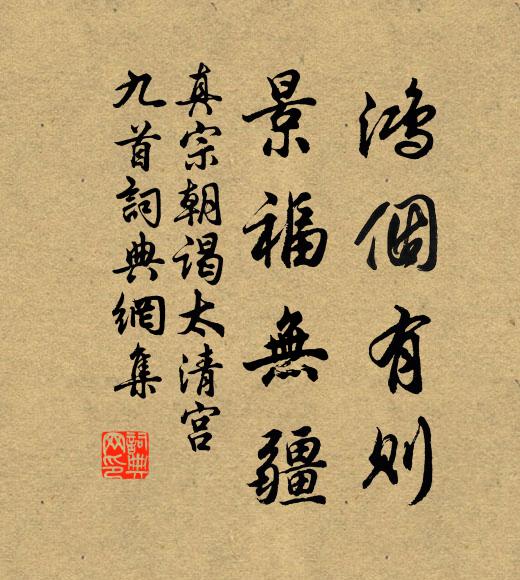 鴻個有則
景福無疆
真宗朝謁太清宮
九首詞典網集
詞典網印